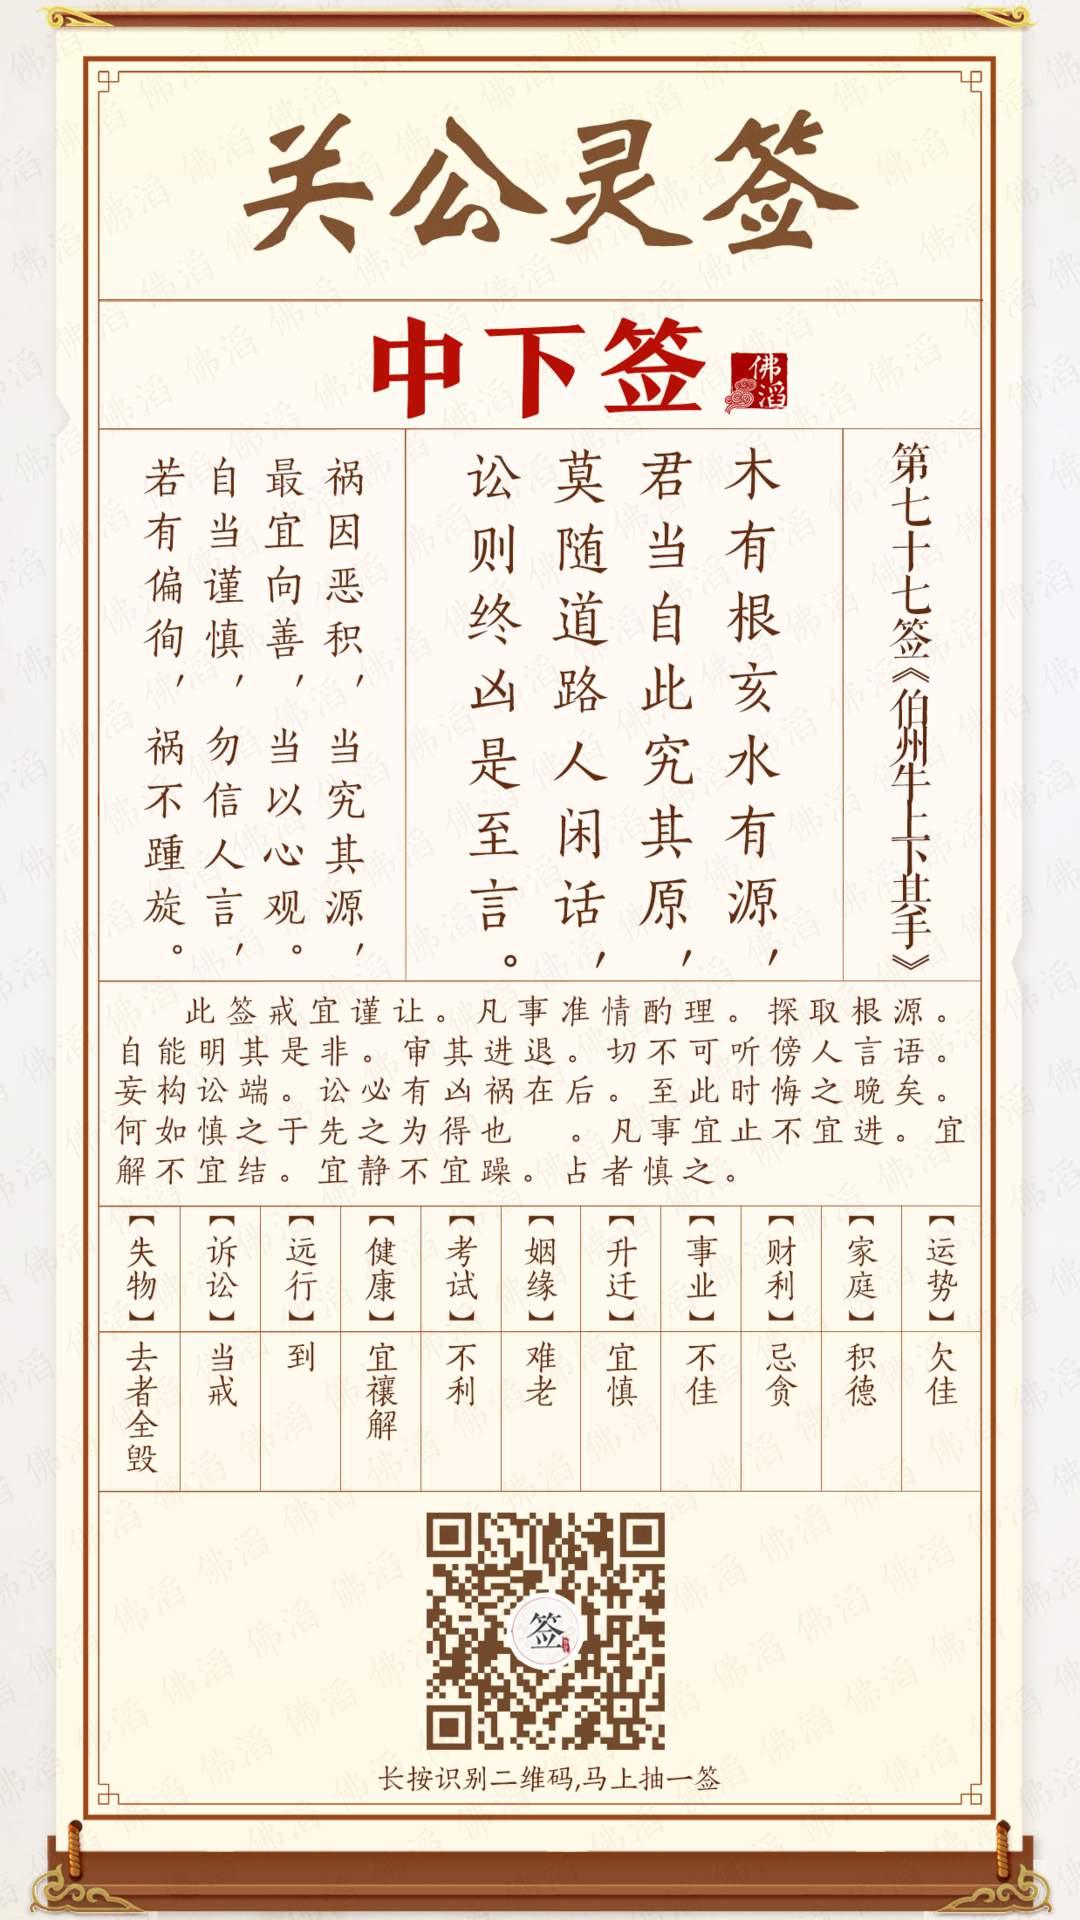 关公灵签
中下签
佛滔
第七十七签《伯州牛上下其手》
木有根亥水有源，
君当自此究其原，
莫随道路人闲话，
讼则终凶是至言。
祸因恶积，当究其源，
最宜向善，当以心观。
自当谨慎，勿信人言，
若有偏徇，祸不踵旋。
此签戒宜谨让。凡事准情酌理。探取根源。
自能明其是非。审其进退。切不可听傍人言语。
妄构讼端。讼必有凶祸在后。至此时悔之晚矣。
何如慎之于先之为得也 。凡事宜止不宜进。宜
解不宜结。宜静不宜躁。占者慎之。
【运势】
欠佳
【家庭】
积德
【财利】
忌贪
【事业】
不佳
【升迁】
宜慎
【姻缘】
难老
【考试】
不利
【健康】
宜禳解
【远行】
到
【诉讼】
当戒
【失物】
去者全毁
签
长按识别二维码,马上抽一签